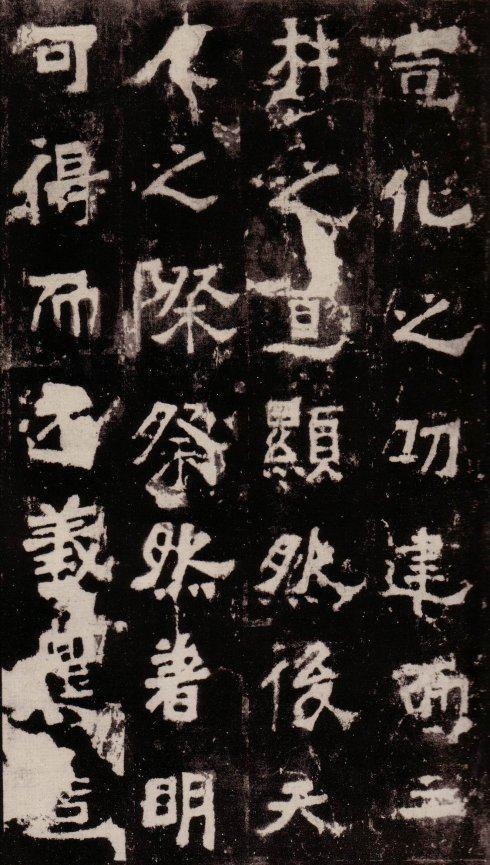 化之功建而
之道顯然後天
人之際粲然著明
可得而義